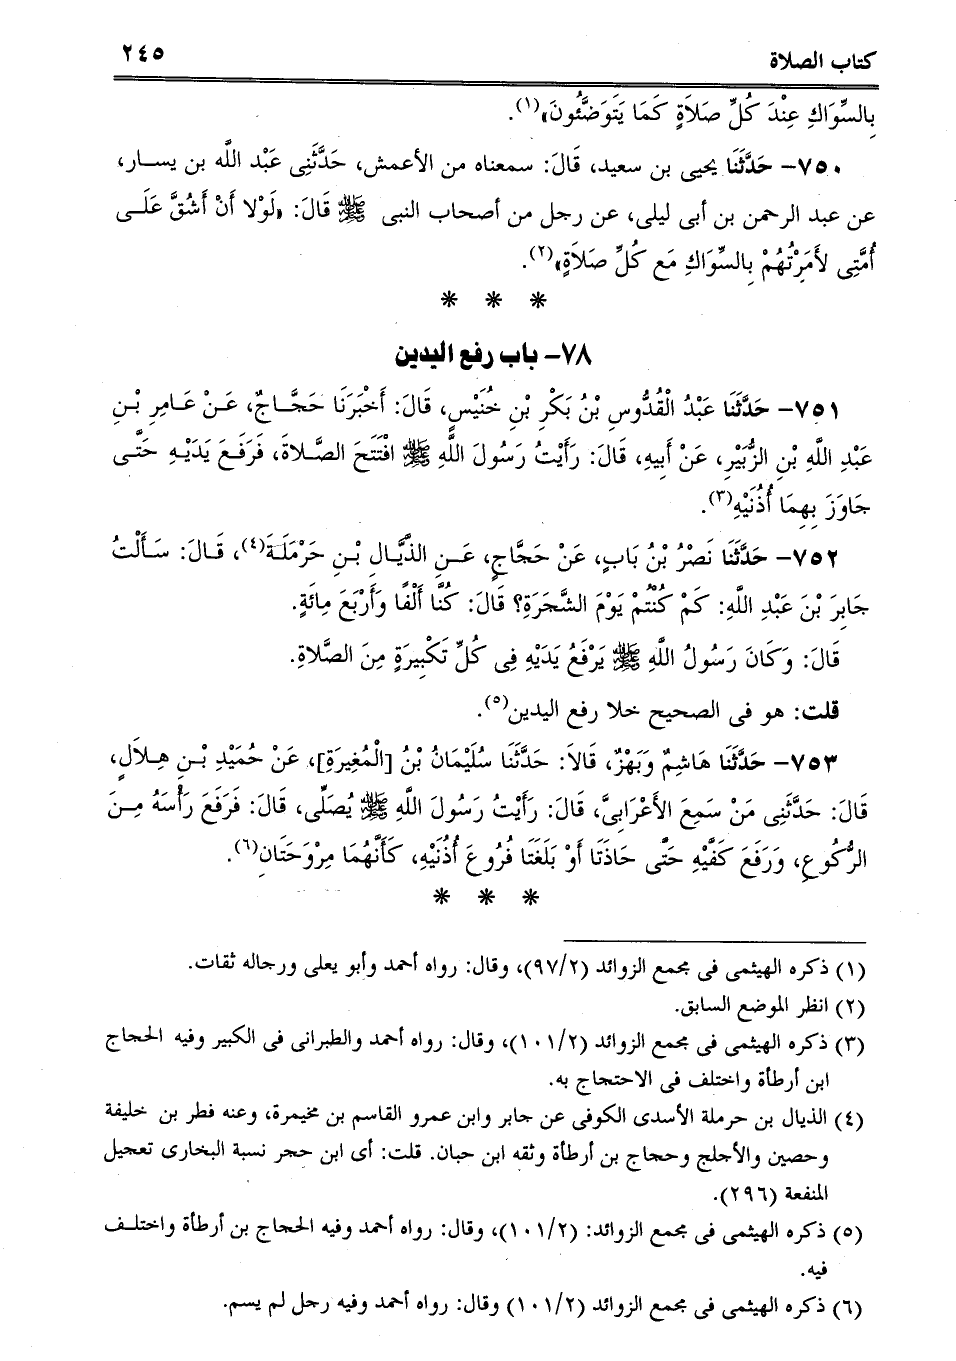 كتاب الصلاة
٢٤٥
بِالسِّوَاكِ عِنْدَ كُلِّ صَلاَةٍ كَمَا يَتَوَضَّئُونَ»(١).
٧٥٠- حَدَّثَنَا يحيى بن سعيد، قَالَ: سمعناه من الأعمش، حَدَّثَنِى عَبْد الله بن يسار،
عن عبد الرحمن بن أبى ليلى، عن رجل من أصحاب النبى ﷺ قَالَ: «لَوْلا أَنْ أَشُقَّ عَلَى
أُمَّتِى لأَمَرْتُهُمْ بِالسِّوَاكِ مَع كُلِّ صَلاَةٍ»(٢).
* * *
٧٨- باب رفع اليدين
٧٥١- حَدَّثَنَا عَبْدُ الْقُدُّوسِ بْنُ بَكْرِ بْنِ خُنَيْسٍ، قَالَ: أَخْبَرَنَا حَجَّاجٌ، عَنْ عَامِرِ بْنِ
عَبْدِ اللَّهِ بْنِ الزُّبَيْرِ، عَنْ أَبِيهِ، قَالَ: رَأَيْتُ رَسُولَ اللَّهِ ﷺ افْتَتَحَ الصَّلاةَ، فَرَفَعَ يَدَيْهِ حَتَّى
جَاوَزَ بِهِمَا أُذُنَيْهِ(٣).
٧٥٢- حَدَّثَنَا نَصْرُ بْنُ بَابٍ، عَنْ حَجَّاجٍ، عَنِ الذَّيَّالِ بْنِ حَرْمَلَةَ(٤)، قَالَ: سَأَلْتُ
جَابِرَ بْنَ عَبْدِ اللَّهِ: كَمْ كُنْتُمْ يَوْمَ الشَّجَرَةِ؟ قَالَ: كُنَّا أَلْفًا وَأَرْبَعَ مِائَةٍ.
قَالَ: وَكَانَ رَسُولُ اللَّهِ ﷺ يَرْفَعُ يَدَيْهِ فِى كُلِّ تَكْبِيرَةٍ مِنَ الصَّلاةِ.
قلت: هو فى الصحيح خلا رفع اليدين(٥).
٧٥٣- حَدَّثَنَا هَاشِمٌ وَبَهْزٌ، قَالاَ: حَدَّثَنَا سُلَيْمَانُ بْنُ [الْمُغِيرَةِ]، عَنْ حُمَيْدِ بْنِ هِلاَلٍ،
قَالَ: حَدَّثَنِى مَنْ سَمِعَ الأَعْرَابِىَّ، قَالَ: رَأَيْتُ رَسُولَ اللَّهِ ﷺ يُصَلِّى، قَالَ: فَرَفَعَ رَأْسَهُ مِنَ
الرُّكُوعِ، وَرَفَعَ كَفَّيْهِ حَتَّى حَاذَتَا أَوْ بَلَغَتَا فُرُوعَ أُذُنَيْهِ، كَأَنَّهُمَا مِرْوَحَتَانِ(٦).
* * *
(١) ذكره الهيثمى فى مجمع الزوائد (٩٧/٢)، وقال: رواه أحمد وأبو يعلى ورجاله ثقات.
(٢) انظر الموضع السابق.
(٣) ذكره الهيثمى فى مجمع الزوائد (١٠١/٢)، وقال: رواه أحمد والطبرانى فى الكبير وفيه الحجاج
ابن أرطأة واختلف فى الاحتجاج به.
(٤) الذيال بن حرملة الأسدى الكوفى عن جابر وابن عمرو القاسم بن مخيمرة، وعنه فطر بن خليفة
وحصين والأجلح وحجاج بن أرطأة وثقه ابن حبان. قلت: أى ابن حجر نسبة البخارى تعجيل
المنفعة (٢٩٦).
(٥) ذكره الهيثمى فى مجمع الزوائد: (١٠١/٢)، وقال: رواه أحمد وفيه الحجاج بن أرطأة واختلف
فيه.
(٦) ذكره الهيثمى فى مجمع الزوائد (١٠١/٢) وقال: رواه أحمد وفيه رجل لم يسم.